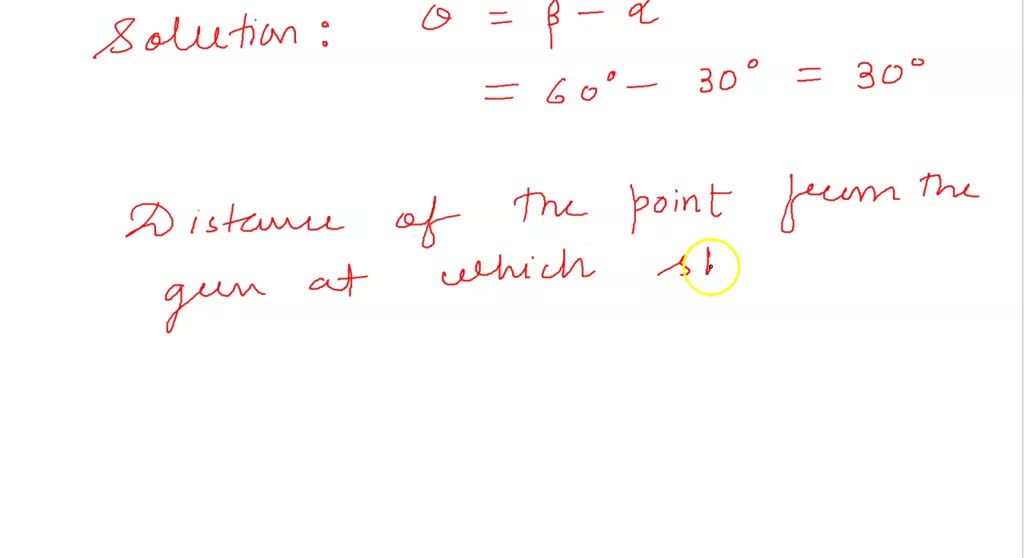 Solution: θ = β - α
= 60° - 30° = 30°
Distance of the point from the
gun at which